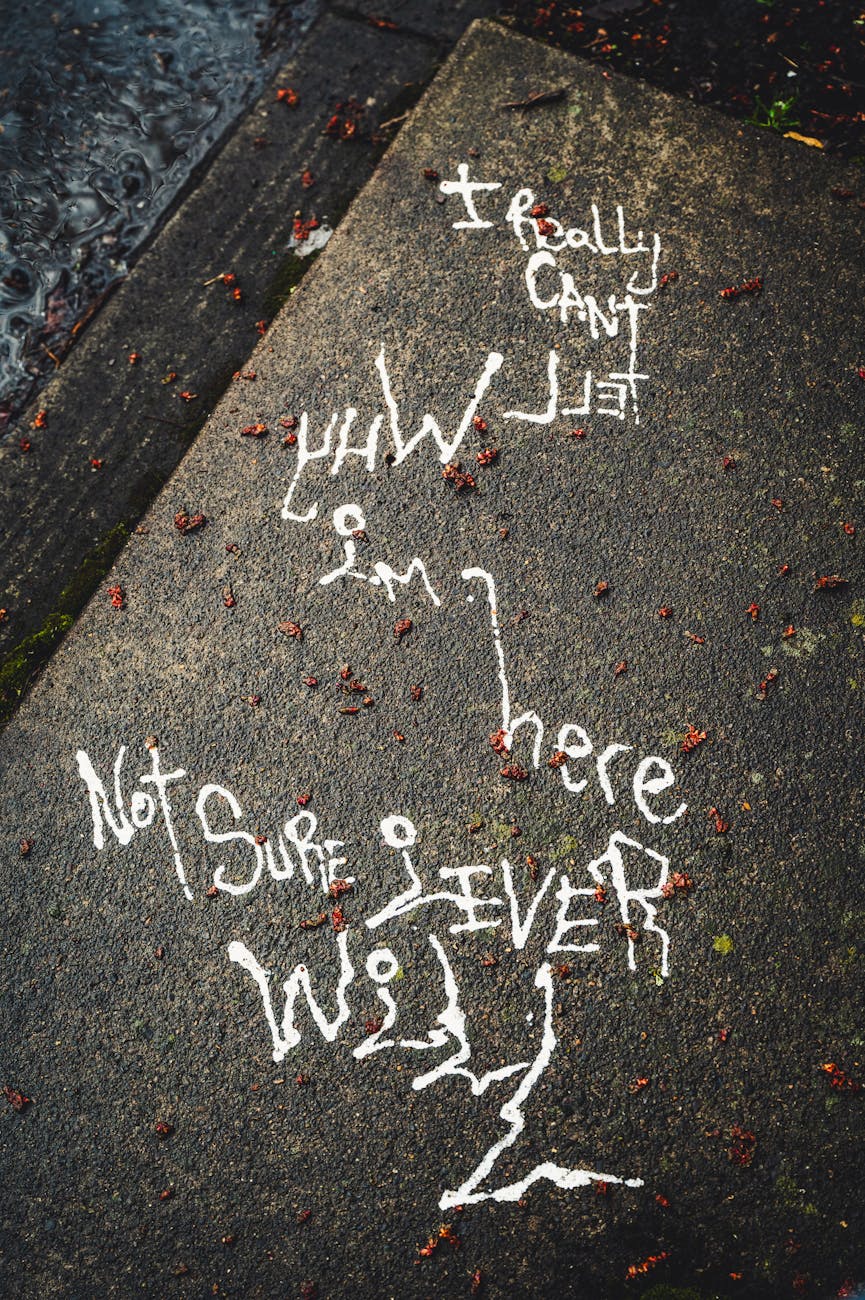 I Really
CANT
TELL WHY
im
here
Not SURE i EVER
Will